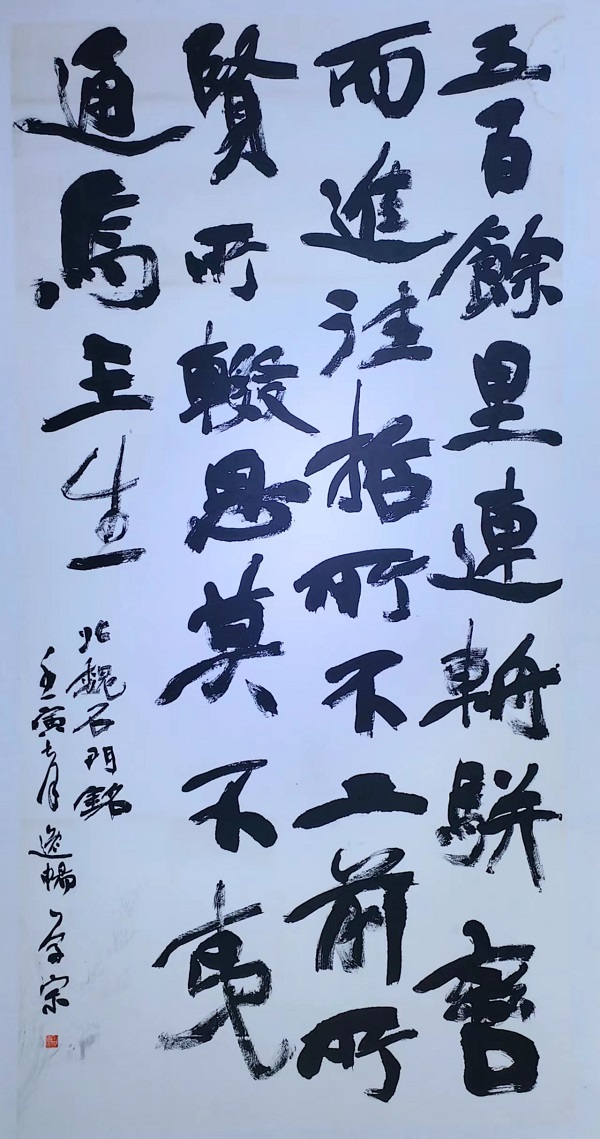 五百餘里連輈駢轡
而進往哲所不工前所
賢所輟思莫不夷
通焉王生
北魏石門銘
壬寅七月逸暢學宗